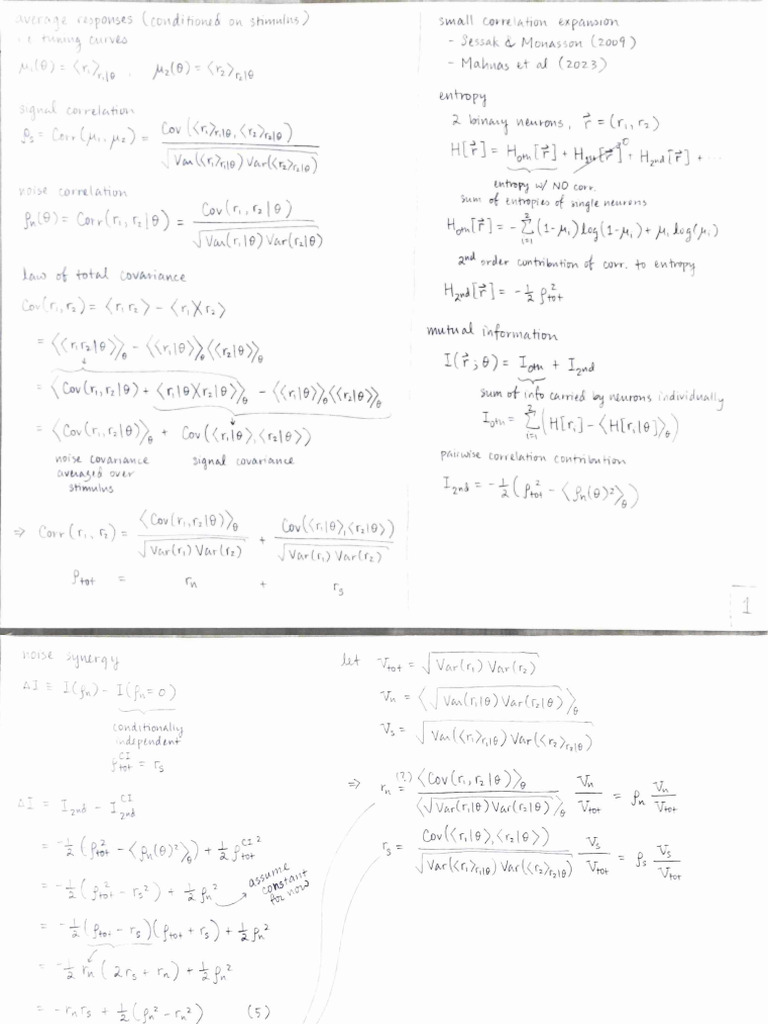 average responses (conditioned on stimulus)
i.e tuning curves
μ₁(θ) = ⟨r₁⟩_{r₁|θ} , μ₂(θ) = ⟨r₂⟩_{r₂|θ}
signal correlation
ρ_s = Corr(μ₁, μ₂) = Cov(⟨r₁⟩_{r₁|θ}, ⟨r₂⟩_{r₂|θ}) / √(Var(⟨r₁⟩_{r₁|θ}) Var(⟨r₂⟩_{r₂|θ}))
noise correlation
ρ_n(θ) = Corr(r₁, r₂|θ) = Cov(r₁, r₂|θ) / √(Var(r₁|θ) Var(r₂|θ))
law of total covariance
Cov(r₁, r₂) = ⟨r₁ r₂⟩ − ⟨r₁⟩⟨r₂⟩
= ⟨⟨r₁ r₂|θ⟩⟩_θ − ⟨⟨r₁|θ⟩⟩_θ ⟨⟨r₂|θ⟩⟩_θ
= ⟨Cov(r₁, r₂|θ) + ⟨r₁|θ⟩⟨r₂|θ⟩⟩_θ − ⟨⟨r₁|θ⟩⟩_θ ⟨⟨r₂|θ⟩⟩_θ
= ⟨Cov(r₁, r₂|θ)⟩_θ + Cov(⟨r₁|θ⟩, ⟨r₂|θ⟩)
noise covariance signal covariance
averaged over
stimulus
⇒ Corr(r₁, r₂) = ⟨Cov(r₁, r₂|θ)⟩_θ / √(Var(r₁) Var(r₂)) + Cov(⟨r₁|θ⟩, ⟨r₂|θ⟩) / √(Var(r₁) Var(r₂))
ρ_tot = r_n + r_s
small correlation expansion
- Sessak & Monasson (2009)
- Mahuas et al (2023)
entropy
2 binary neurons, r⃗ = (r₁, r₂)
H[r⃗] = H_0th[r⃗] + H_1st[r⃗] 0 + H_2nd[r⃗] + ...
entropy w/ NO corr.
sum of entropies of single neurons
H_0th[r⃗] = − Σ_{i=1}^{2} (1−μ_i) log(1−μ_i) + μ_i log(μ_i)
2nd order contribution of corr. to entropy
H_2nd[r⃗] = −½ ρ²_tot
mutual information
I(r⃗; θ) = I_0th + I_2nd
sum of info carried by neurons individually
I_0th = Σ_{i=1}^{2} (H[r_i] − ⟨H[r_i|θ]⟩_θ)
pairwise correlation contribution
I_2nd = −½ (ρ²_tot − ⟨ρ_n(θ)²⟩_θ)
1
noise synergy
ΔI ≡ I(ρ_n) − I(ρ_n=0)
conditionally
independent
ρ^CI_tot = r_s
ΔI = I_2nd − I^CI_2nd
= −½ (ρ²_tot − ⟨ρ_n(θ)²⟩_θ) + ½ ρ^CI_tot ²
= −½ (ρ²_tot − r_s²) + ½ ρ_n²
assume
constant
for now
= −½ (ρ_tot − r_s)(ρ_tot + r_s) + ½ ρ_n²
= −½ r_n (2r_s + r_n) + ½ ρ_n²
= − r_n r_s + ½ (ρ_n² − r_n²) (5)
let V_tot = √(Var(r₁) Var(r₂))
V_n = ⟨√(Var(r₁|θ) Var(r₂|θ))⟩_θ
V_s = √(Var(⟨r₁⟩_{r₁|θ}) Var(⟨r₂⟩_{r₂|θ}))
⇒ r_n (?) = ⟨Cov(r₁, r₂|θ)⟩_θ / ⟨√(Var(r₁|θ) Var(r₂|θ))⟩_θ V_n / V_tot = ρ_n V_n / V_tot
r_s = Cov(⟨r₁|θ⟩, ⟨r₂|θ⟩) / √(Var(⟨r₁⟩_{r₁|θ}) Var(⟨r₂⟩_{r₂|θ})) V_s / V_tot = ρ_s V_s / V_tot